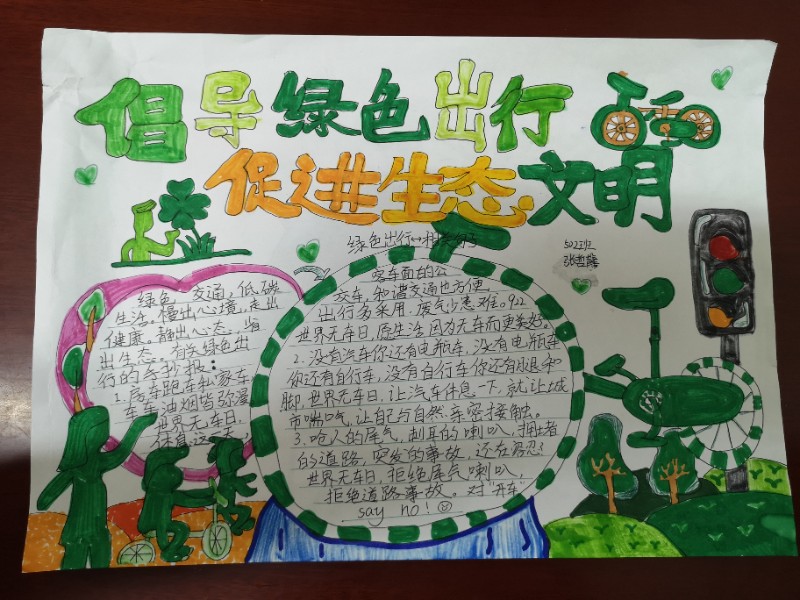 倡导绿色出行
促进生态文明
绿色出行
502班
绿色 交通，低碳
生活。慢出心境，走出
健康。静出心态，省
出生态。有关绿色出
行的手抄报：
1. 尾车跑车私家车
车车油烟皆弥漫
世界无车日，
休息这一天。
客车面的公
交车，和谐交通也方便
出行多采用，废气少患难。922
世界无车日，原生活因为无车而更美好。
2. 没有汽车你还有电瓶车，没有电瓶车
你还有自行车，没有自行车你还有腿和
脚，世界无车日，让汽车休息一下，就让城
市喘口气，让自己与自然亲密接触。
3. 呛人的尾气，刺耳的喇叭，拥堵着
的道路，突发的事故，还在容忍？
世界无车日，拒绝尾气喇叭，
拒绝道路事故。对“开车”
say no！